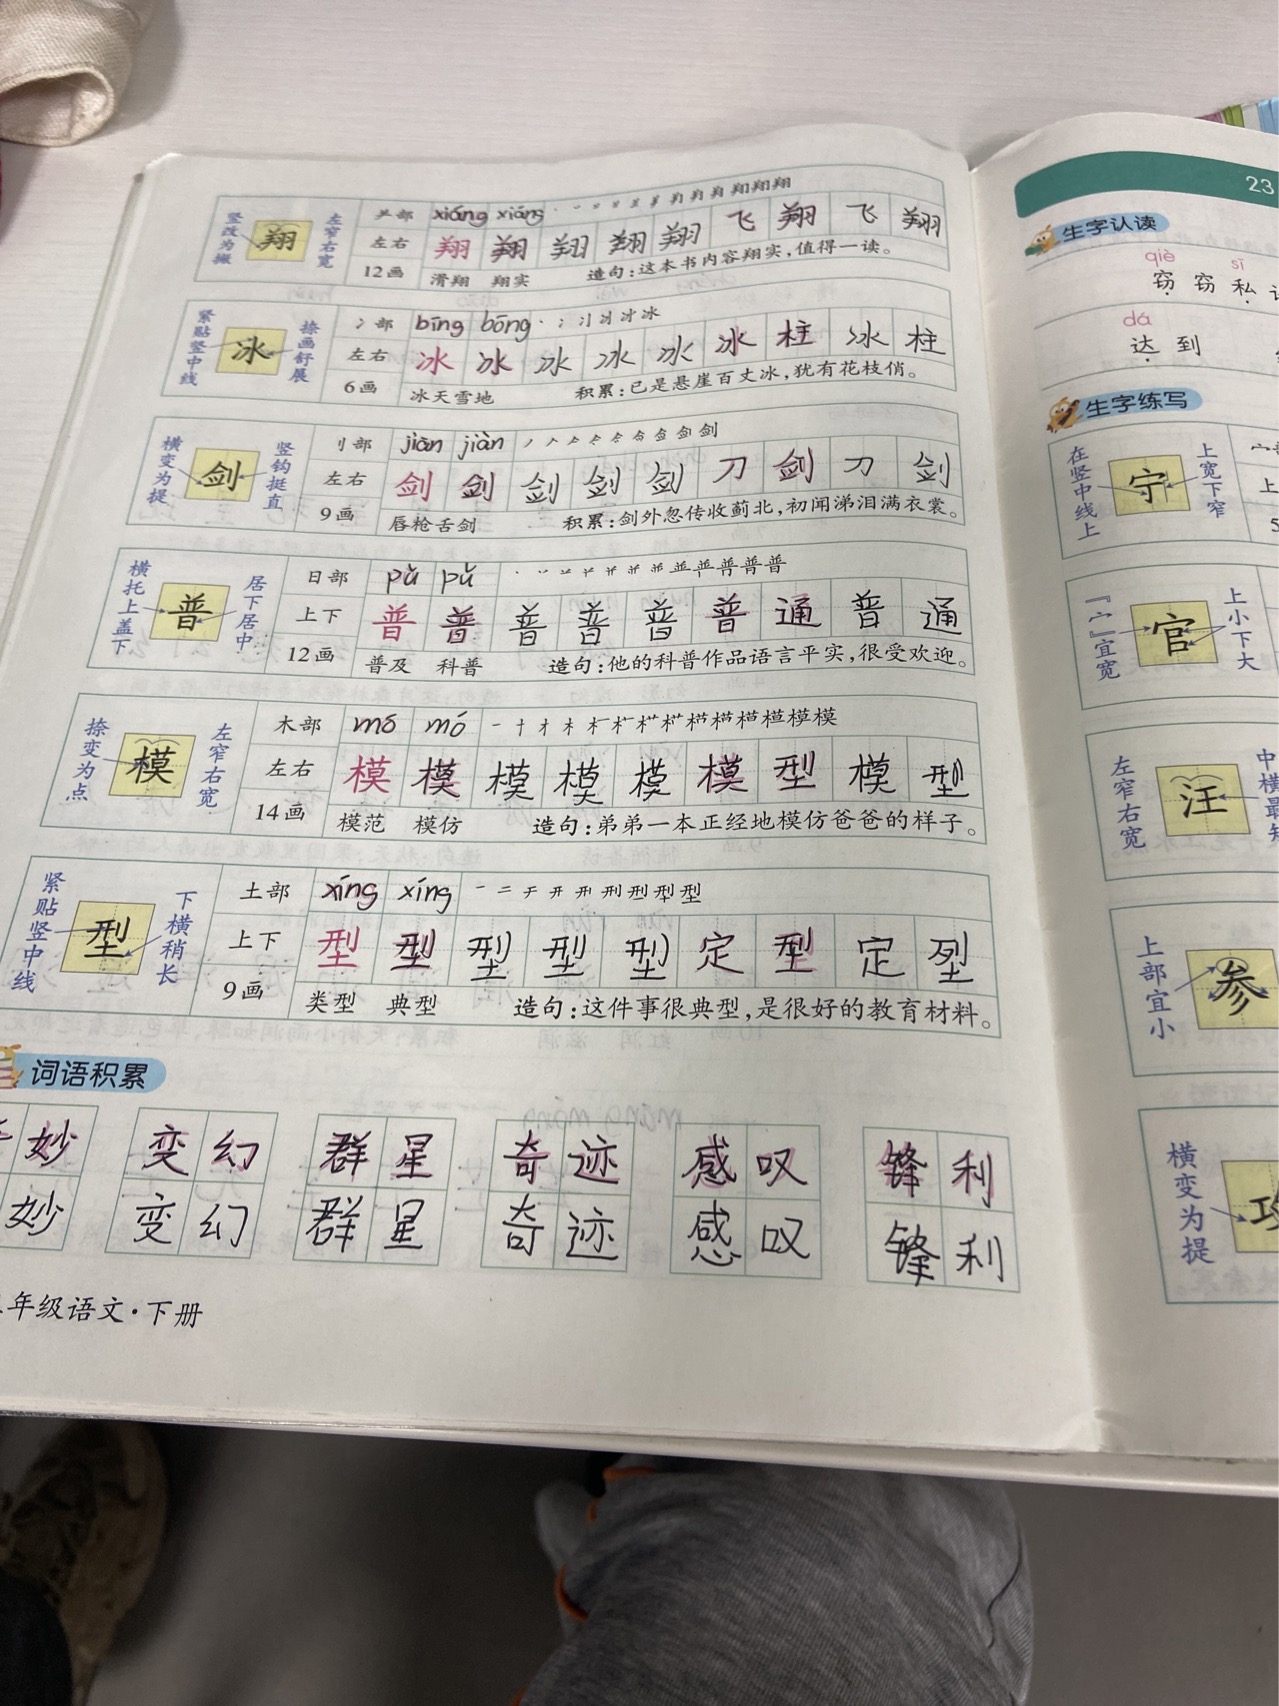 竖改为撇 翔 左窄右宽 部 xiáng xiáng
左右 翔 翔 翔 翔 翔 飞 翔 飞 翔
12画 滑翔 翔实 造句:这本书内容翔实,值得一读。
紧贴竖中线 冰 捺画舒展 冫部 bīng bōng 冰
左右 冰 冰 冰 冰 冰 冰 柱 冰 柱
6画 冰天雪地 积累:已是悬崖百丈冰,犹有花枝俏。
横变为提 剑 竖钩挺直 刂部 jiàn jiàn 剑
左右 剑 剑 剑 剑 剑 刀 剑 刀 剑
9画 唇枪舌剑 积累:剑外忽传收蓟北,初闻涕泪满衣裳。
横托上盖下 普 居下居中 日部 pǔ pǔ 普
上下 普 普 普 普 普 普 通 普 通
12画 普及 科普 造句:他的科普作品语言平实,很受欢迎。
捺变为点 模 左窄右宽 木部 mó mó 模
左右 模 模 模 模 模 模 型 模 型
14画 模范 模仿 造句:弟弟一本正经地模仿爸爸的样子。
紧贴竖中线 型 下横稍长 土部 xíng xíng 一 二 开 型
上下 型 型 型 型 型 定 型 定 型
9画 类型 典型 造句:这件事很典型,是很好的教育材料。
词语积累
妙 变幻 群星 奇迹 感叹 锋利
妙 变幻 群星 奇迹 感叹 锋利
年级语文·下册
23
生字认读
qiè sī
窃 窃 私
dá
达 到
生字练写
在竖中线上 守 上宽下窄
上
5
『宀』宜宽 官 上小下大
左窄右宽 汪 中横最短
上部宜小 参
横变为提